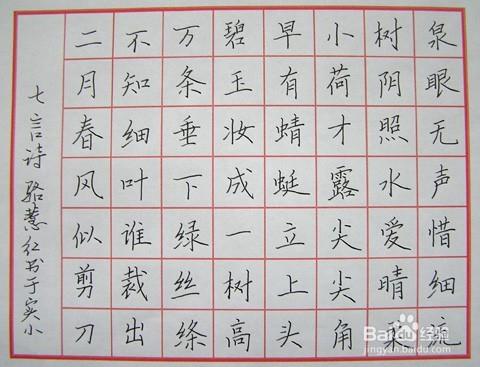 泉眼无声惜细流
树阴照水爱晴柔
小荷才露尖尖角
早有蜻蜓立上头
碧玉妆成一树高
万条垂下绿丝绦
不知细叶谁裁出
二月春风似剪刀
七言诗 骆慧红书于实小
Baidu 经验
jingyan.baidu.com